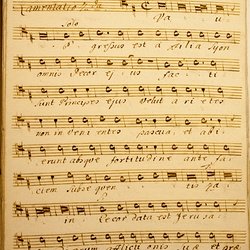 Lamentatio 2da
solo Va u
E gressus est a filia Syon
omnis decor ejus fac ti
sunt Principes ejus velut a ri etes
non in veni entes pascua, et abi
erunt absque fortitudine ante fa
ciem subse quen tis
in Recor data est Jerusa